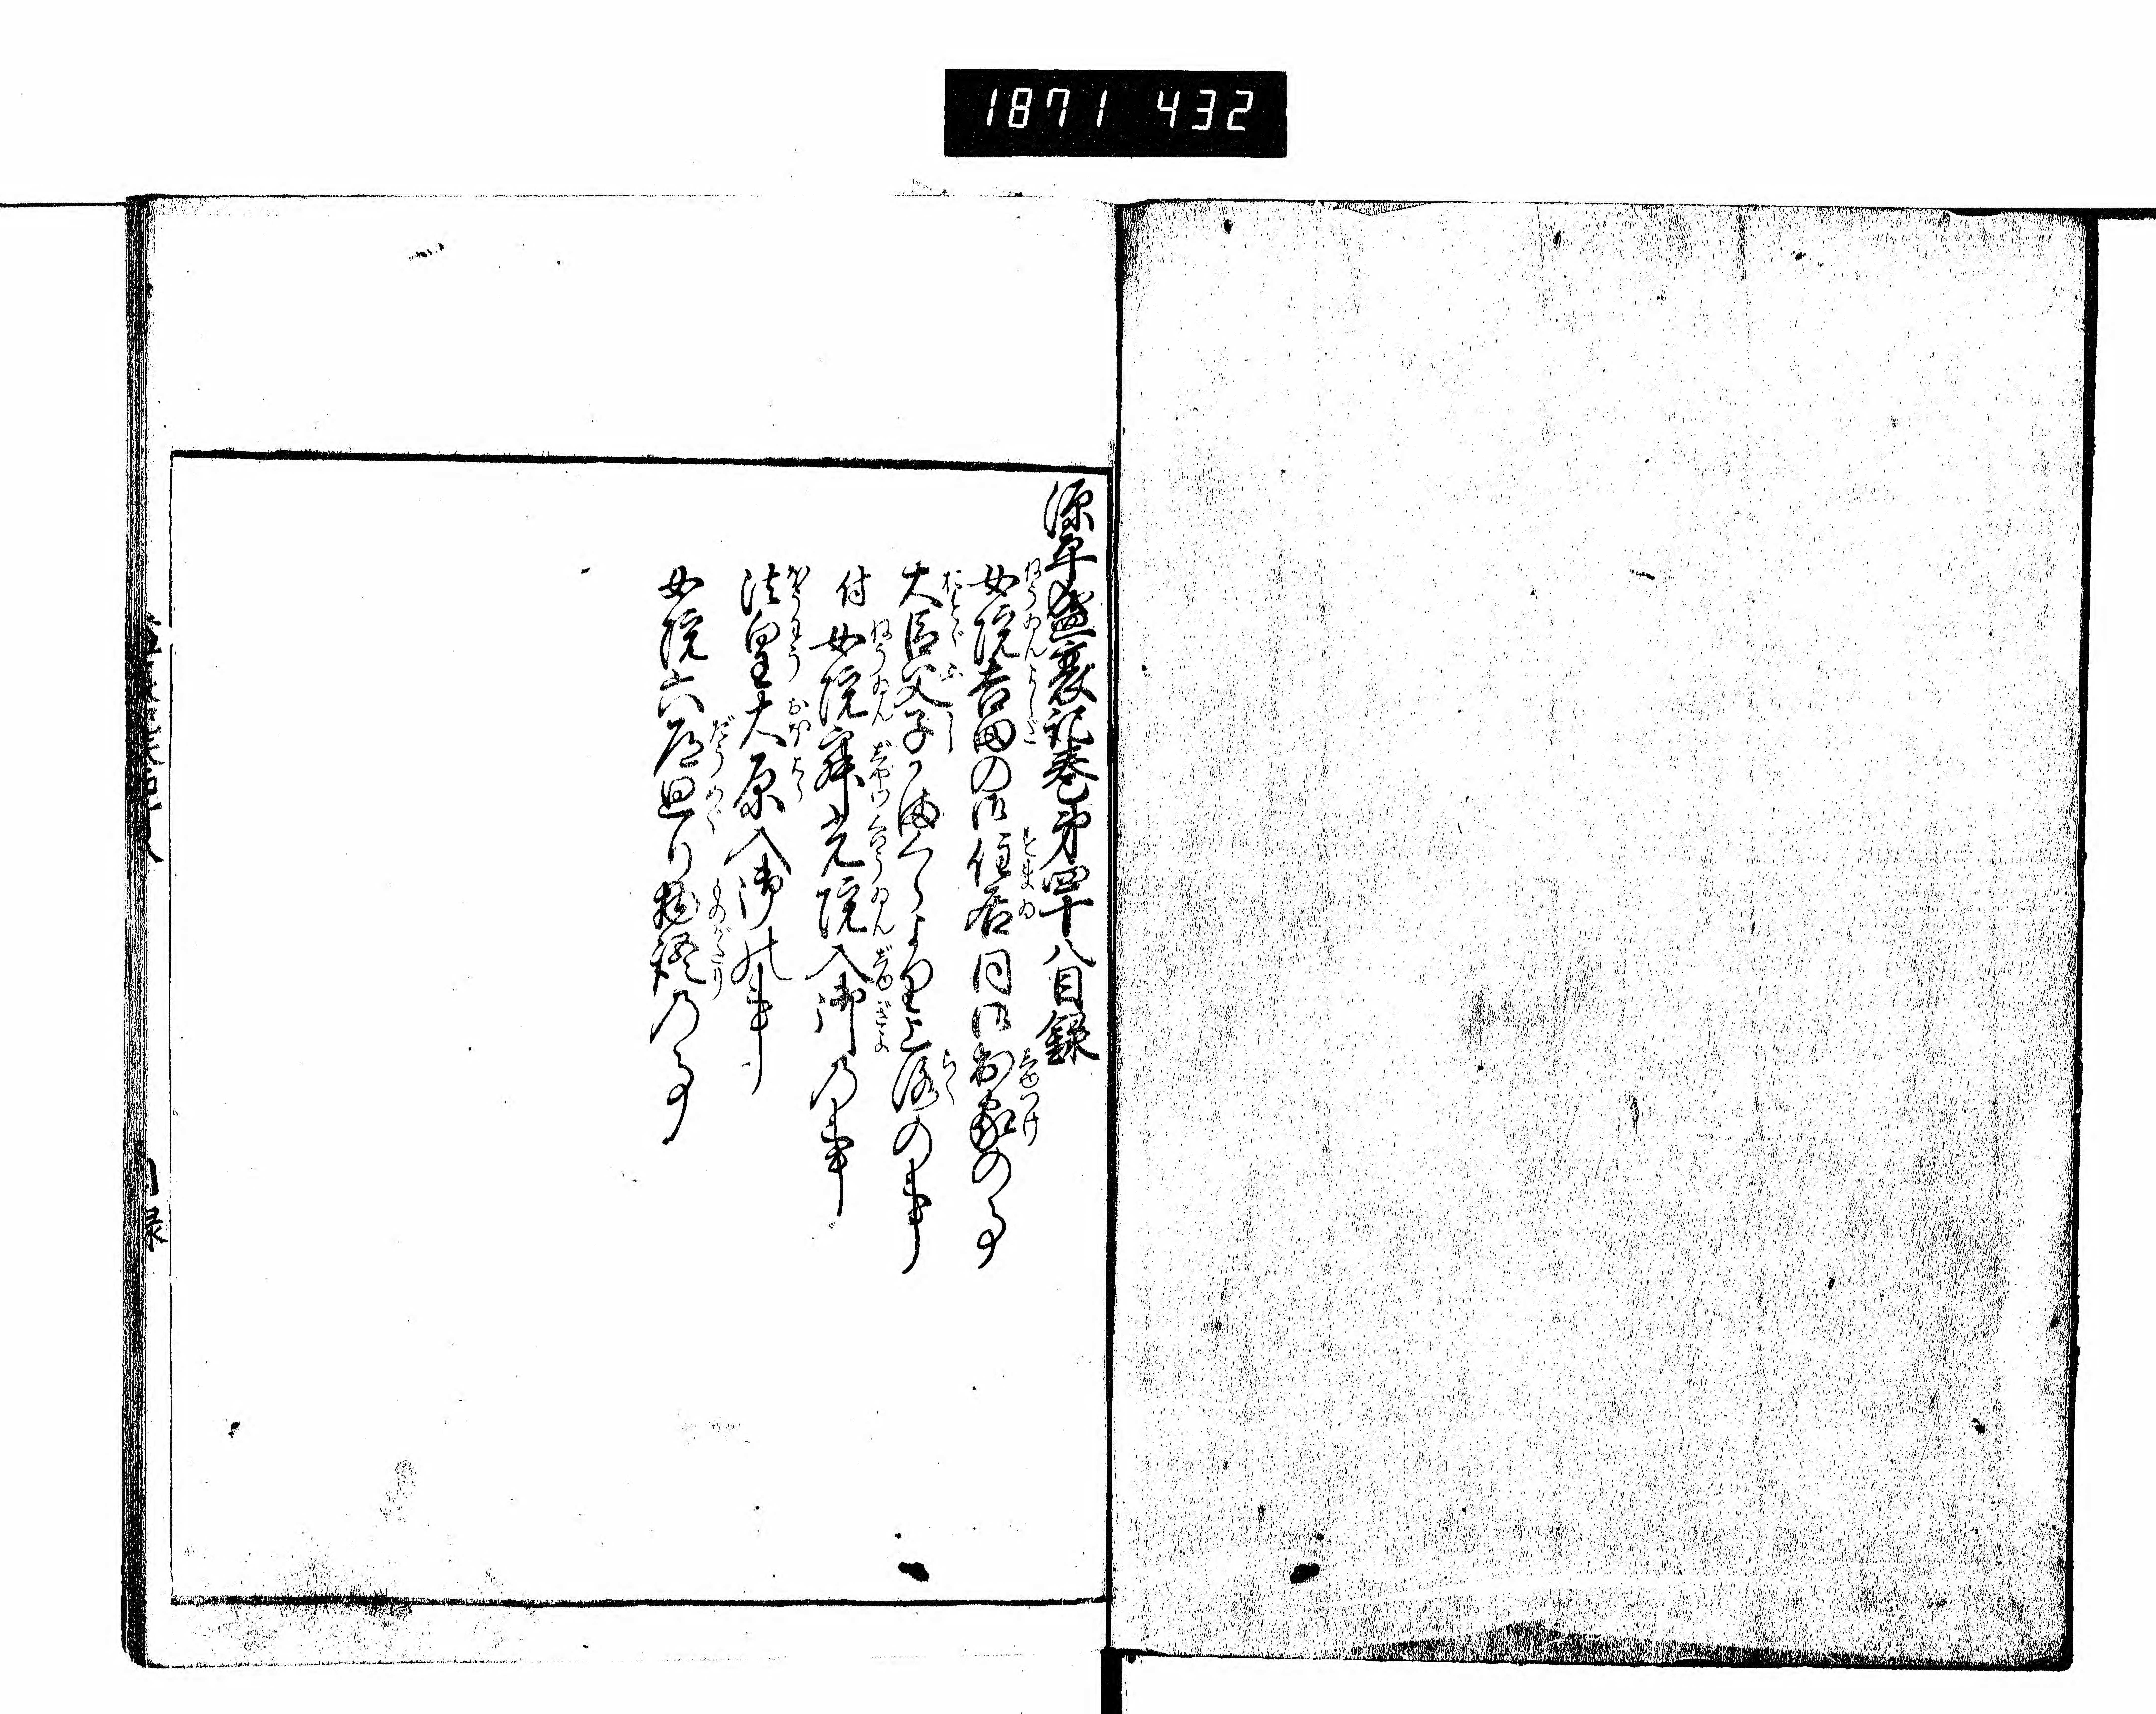 1871 432
源平盛衰記巻第四十八目録
女院吉田の御住居同御出家の事
大臣父子かまくらより上洛の事
付女院寂光院入御乃事
法皇大原入御の事
女院六道廻り物語乃事